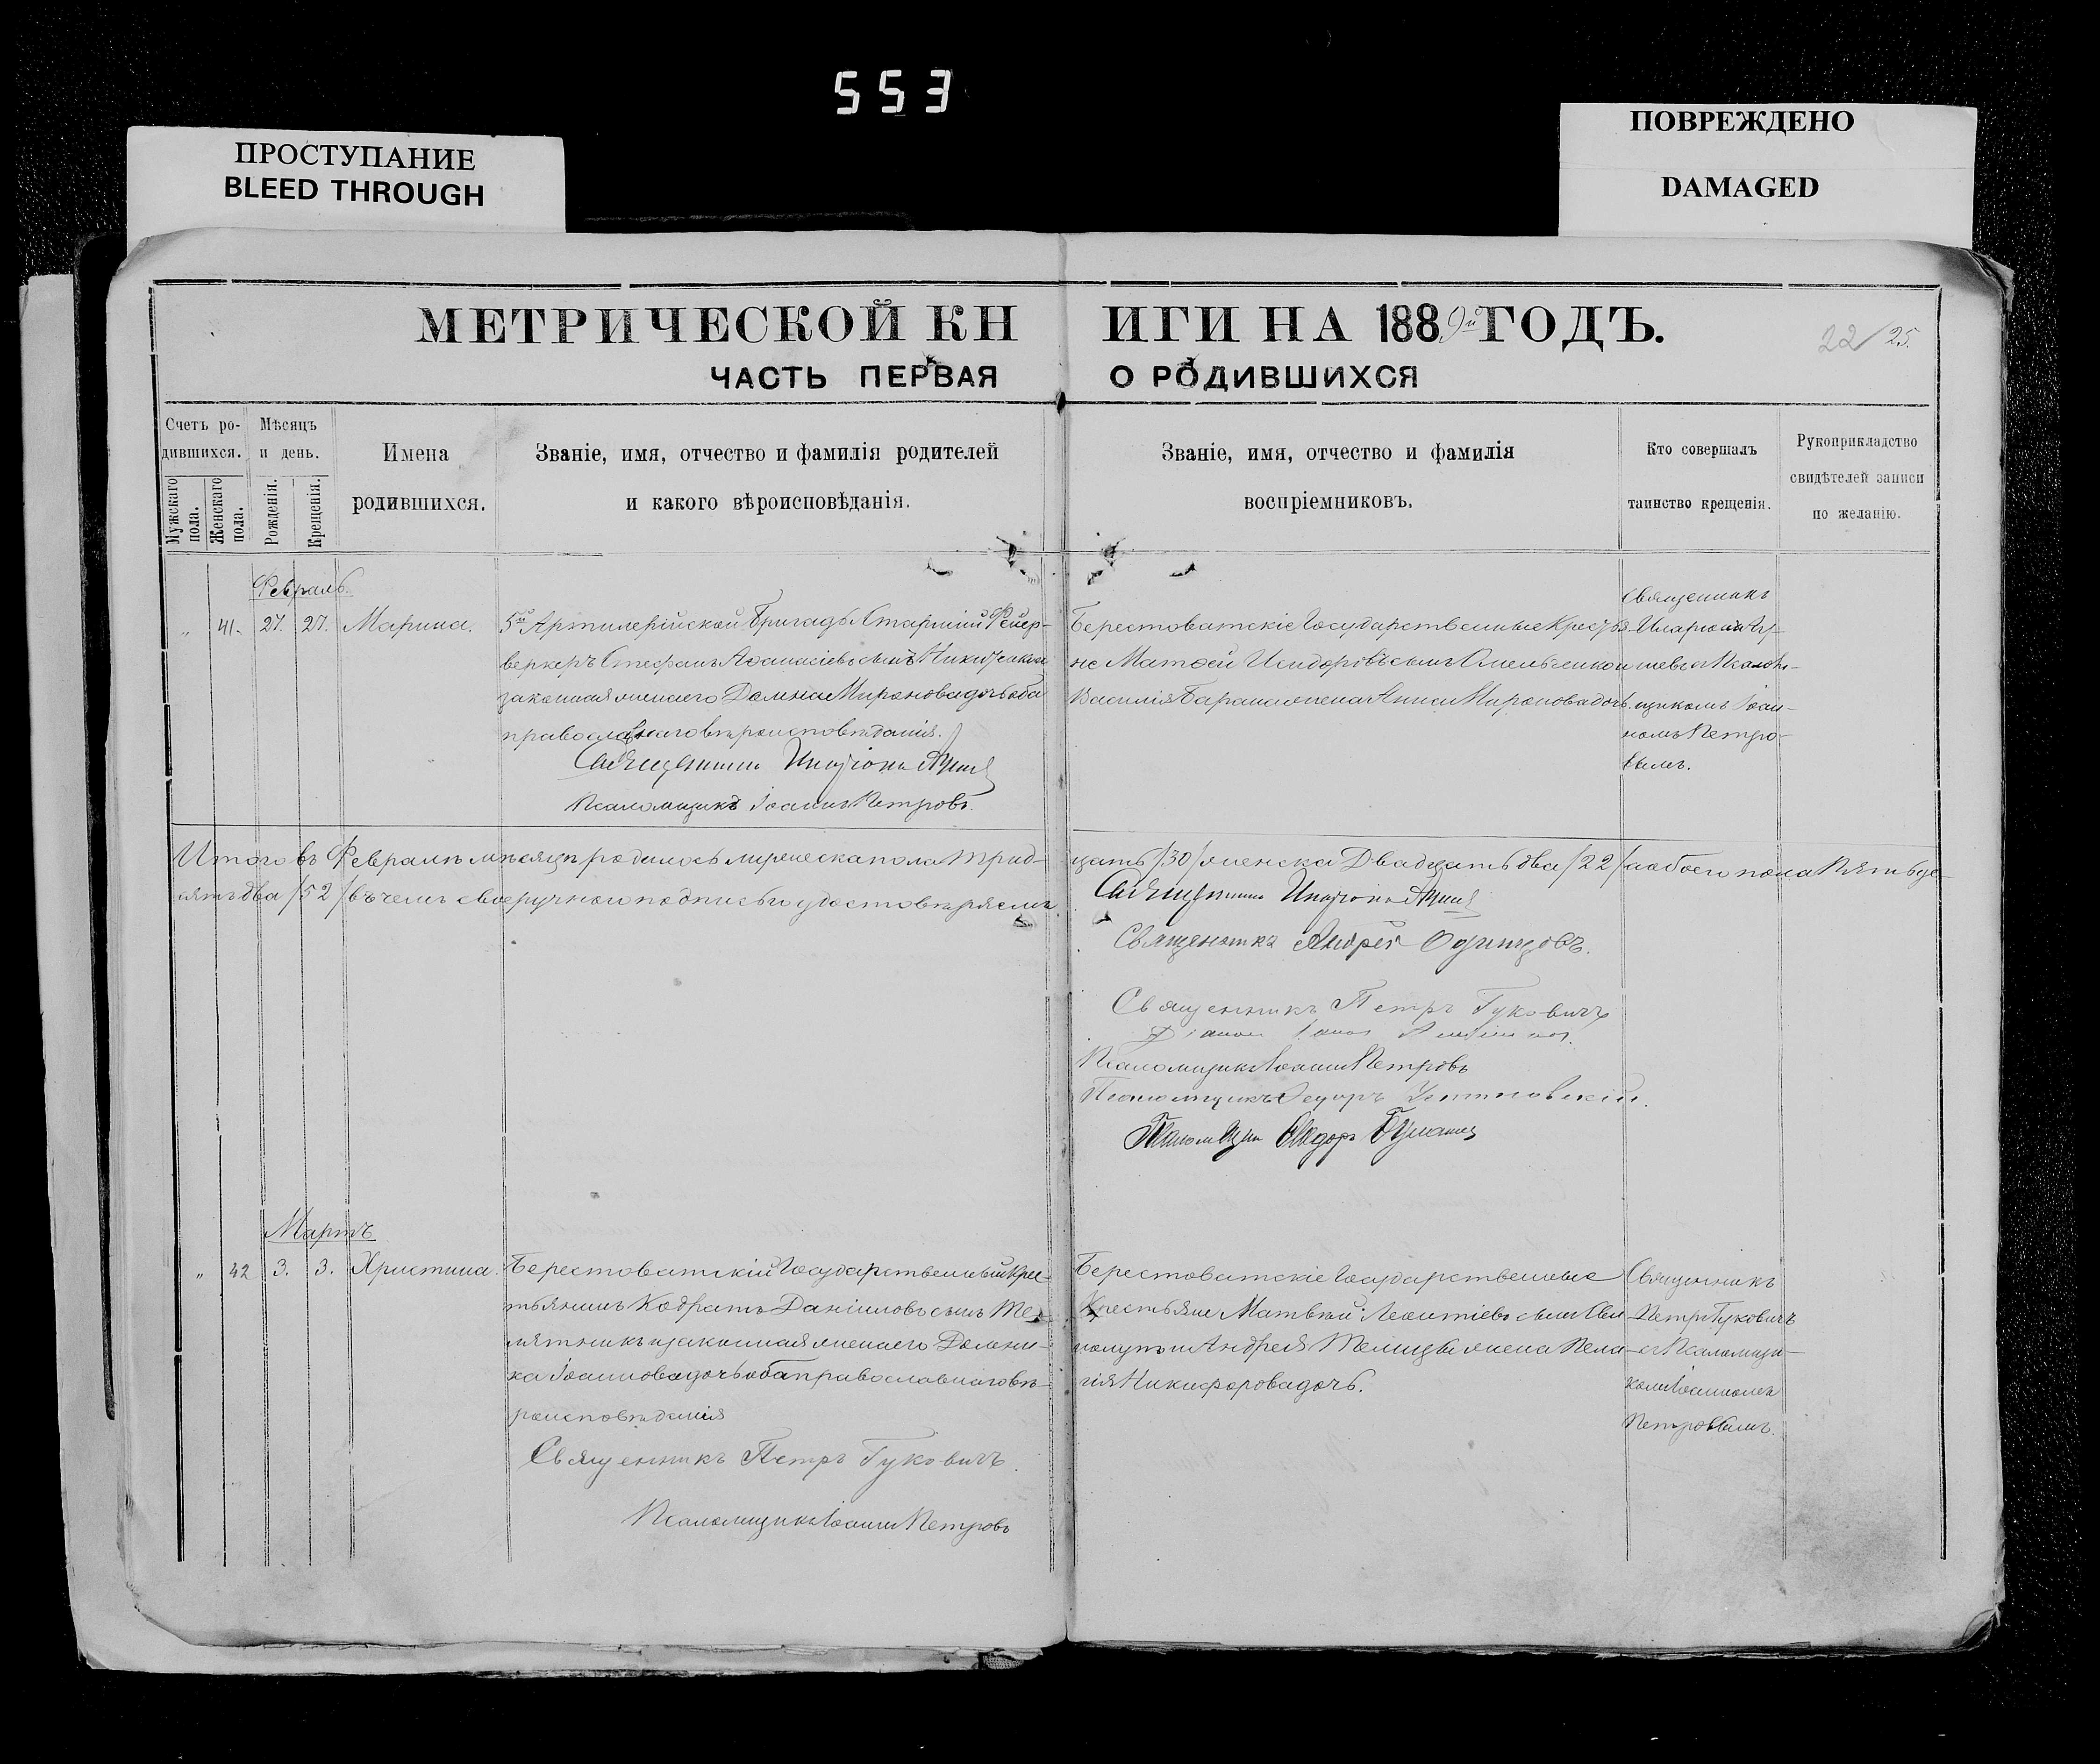 553
ПРОСТУПАНИЕ
BLEED THROUGH
ПОВРЕЖДЕНО
DAMAGED
МЕТРИЧЕСКОЙ КНИГИ НА 1889й ГОДЪ.
22/25.
ЧАСТЬ ПЕРВАЯ О РОДИВШИХСЯ
Счетъ родившихся.
Мужскаго пола.
Женскаго пола.
Мѣсяцъ и день.
Рожденія.
Крещенія.
Имена родившихся.
Званіе, имя, отчество и фамилія родителей
и какого вѣроисповѣданія.
Званіе, имя, отчество и фамилія
воспріемниковъ.
Кто совершалъ
таинство крещенія.
Рукоприкладство
свидѣтелей записи
по желанію.
Февраль.
„ 41. 27. 27. Марина.
5й Артилерійской Бригады Старшій Фейер-
веркеръ Стефанъ Аѳанасіевъ сынъ
законная жена его Домна Миронова дочь оба
православнаго вѣроисповѣданія.
Священникъ
Псаломщикъ Іоаннъ Петровъ.
Берестоватскіе Государственные Крестья-
не Матѳей Исидоровъ сынъ Омельченко и
Василія Барана жена Анна Миронова дочь.
Священникъ
Псалом-
щикомъ Іоан-
номъ Петро-
вымъ.
Итого въ Февралѣ мѣсяцѣ родилось мужеска пола трид-
цать /30/ женска Двадцать два /22/ а обоего пола Пятьде-
сятъ два /52/ въ чемъ своеручною подписью удостовѣряемъ
Священникъ
Священникъ Андрей Одинцовъ.
Священникъ Петръ Гуковичъ
Псаломщикъ Іоаннъ Петровъ
Псаломщикъ Ѳедоръ
Псаломщикъ
Мартъ
„ 42 3. 3. Христина.
Берестоватскій Государственный Крес-
тьянинъ Кодратъ Даніиловъ сынъ
и законная жена его Домни-
ка Іоаннова дочь оба православнаго вѣ-
роисповѣданія
Священникъ Петръ Гуковичъ
Псаломщикъ Іоаннъ Петровъ
Берестоватскіе Государственные
Крестьяне Матвѣй Леонтіевъ сынъ
и Андрея Телицы жена Пела-
гія Никифорова дочь.
Священникъ
Петръ Гуковичъ
съ Псаломщи-
комъ Іоанномъ
Петровымъ.